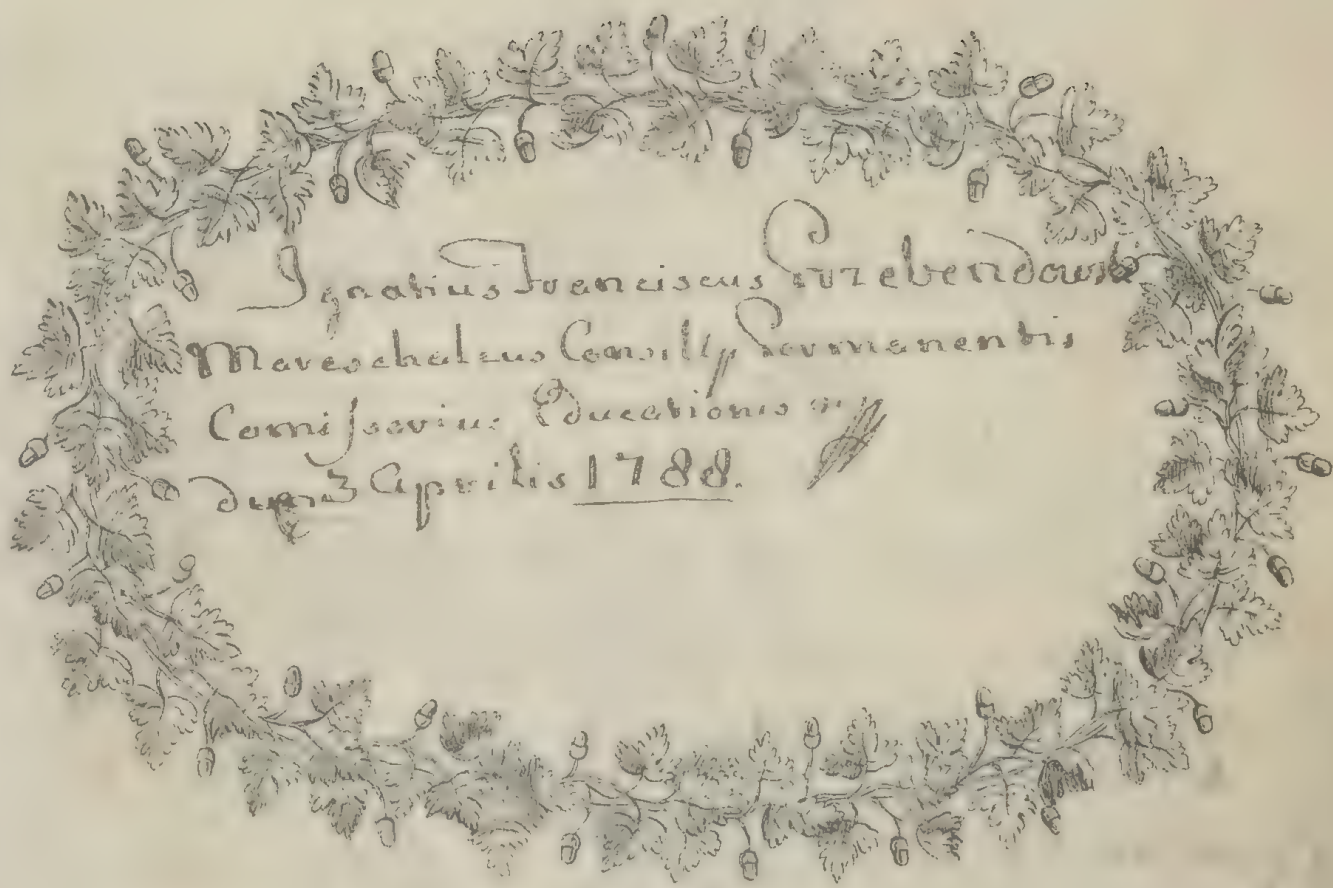 Ignatius Franciscus Przebendowski
Mareschalcus Consilly Permanentis
Comissarius Educationis
3 Aprilis 1788.